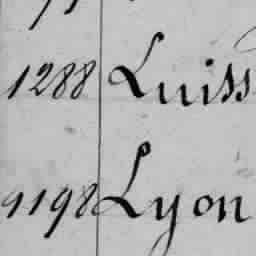 1288 Luiss
9198 Lyon